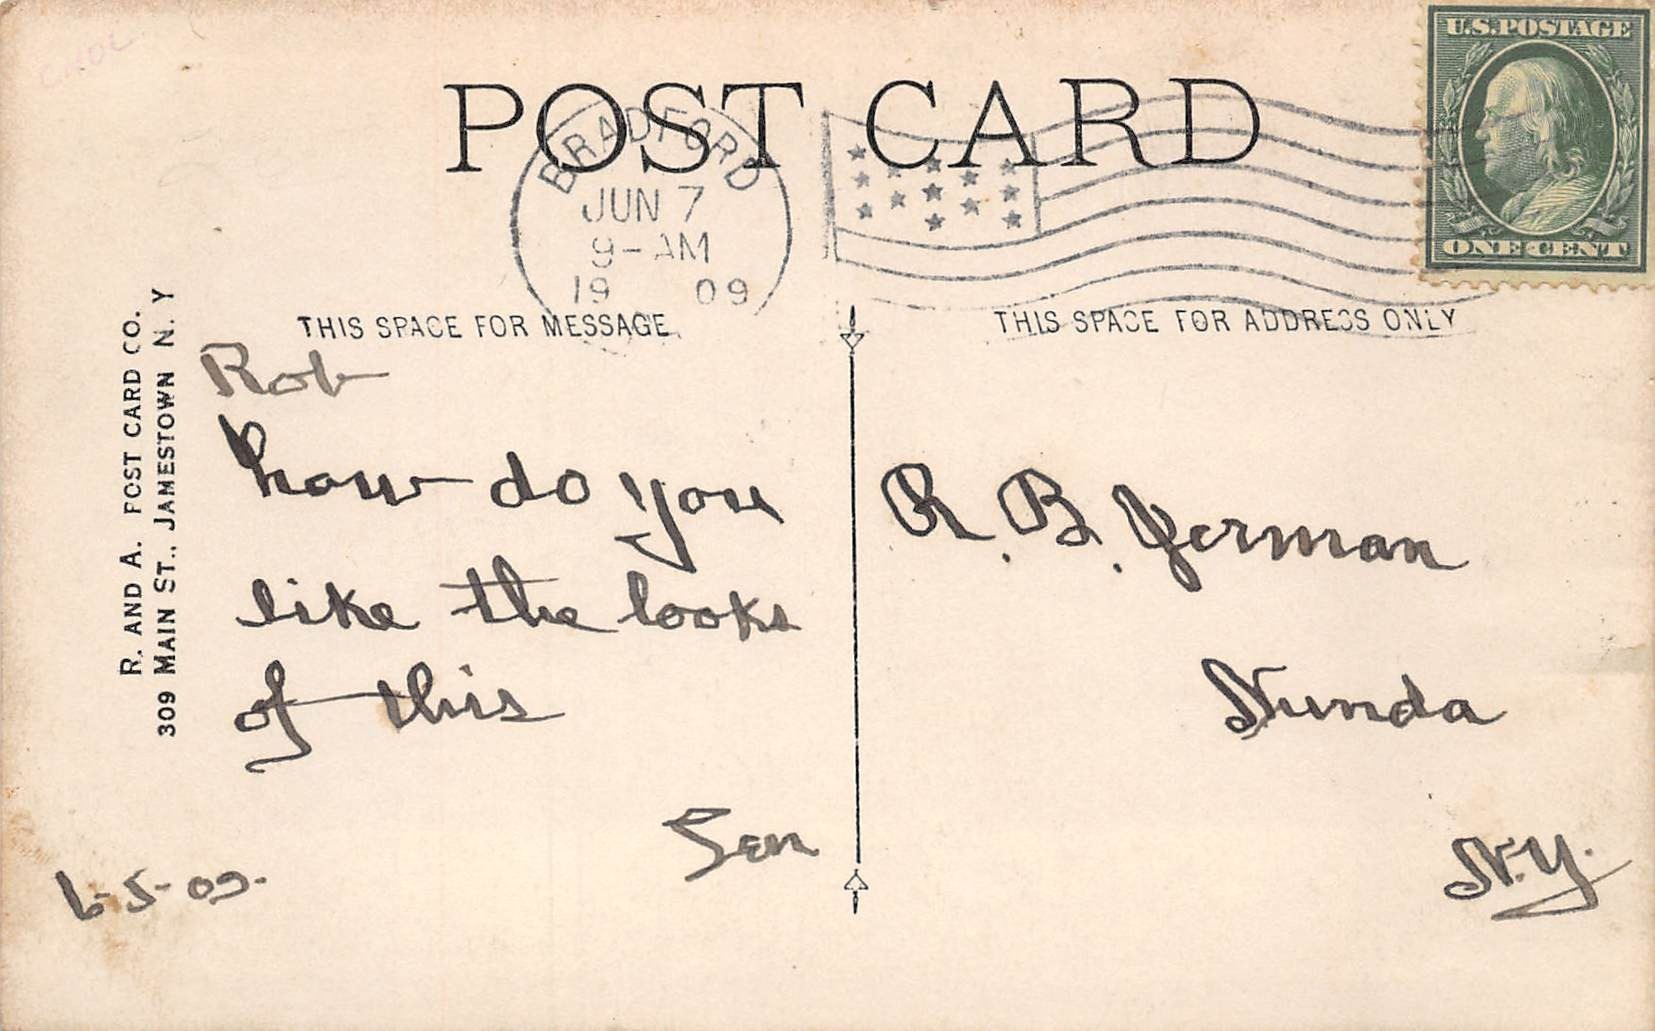 U.S. POSTAGE
ONE CENT
POST CARD
BRADFORD
JUN 7
9-AM
19 09
THIS SPACE FOR MESSAGE
THIS SPACE FOR ADDRESS ONLY
R. AND A. POST CARD CO.
309 MAIN ST., JAMESTOWN N. Y
Rob
how do you
like the looks
of this
6-5-09.
R. B. Yerman
Nunda
N.Y.